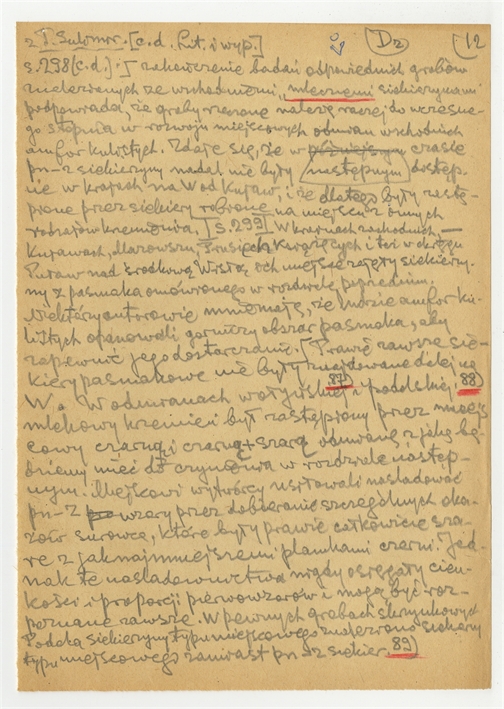 z T. Sulimir. [c.d. lit. i wyp.] D2 12
s. 298 [c.d.] zakończenie badań odpowiednich grobów
znalezionych ze wschodnimi, mlecznymi siekierami
podpowiada, że groby rzeczone należą raczej do wczesne-
go stopnia w rozwoju miejscowych odmian wschodnich
amfor kulistych. Zdaje się, że w późniejszym czasie
pn-z siekierzyny nadal nie były następnym dostęp-
ne w krajach na Wod Kujaw, i że dlatego były zastą-
pione przez siekiery robione na miejscu z innych
rodzajów krzemienia. [s. 299] W krainach zachodnich, —
Kujawach, Mazowszu, Prusiech Książęcych i też w okręgu
Puław nad środkową Wisłą ich miejsce zajęły siekiery-
ny z pasmaka omówionego w rozdziale poprzednim.
Niektórzy autorowie mniemają, że ludzie amfor ku-
listych opanowali górniczy obszar pasmaka, aby
zapewnić jego dostarczanie. [Prawie zawsze sie-
kiery pasmakowe nie były znajdowane dalej na
W. 87) W odmianach wołyńskiej i podolskiej 88)
mlekowy krzemień był zastąpiony przez miejs-
cowy czarną i czarną + szarą odmianę z jaką bę-
dziemy mieć do czynienia w rozdziale następ-
nym. Miejscowi wytwórcy usiłowali naśladować
pn-z wzory przez dobieranie szczególnych oka-
zów surowca, które były prawie całkowicie sza-
re z jaknajmniejszemi plamkami czerni. Jed-
nak te naśladownictwa nigdy osięgały cien-
kości i proporcji pierwowzorów i mogą być roz-
poznane zawsze. W pewnych grobach skrzynkowych
Podola siekierzyny typu miejscowego znaleziono siekiery
typu miejscowego zamiast pn-z siekier. 89)